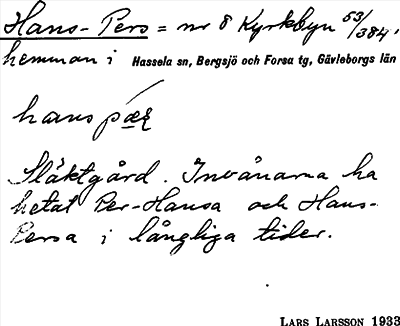 Hans-Pers = nr 8 Kyrkbyn 53/384,
hemman i Hassela sn, Bergsjö och Forsa tg, Gävleborgs län
hans pæʀ
Släktgård. Invånarna ha
hetat Per-Hansa och Hans-
Persa i långliga tider.
LARS LARSSON 1933